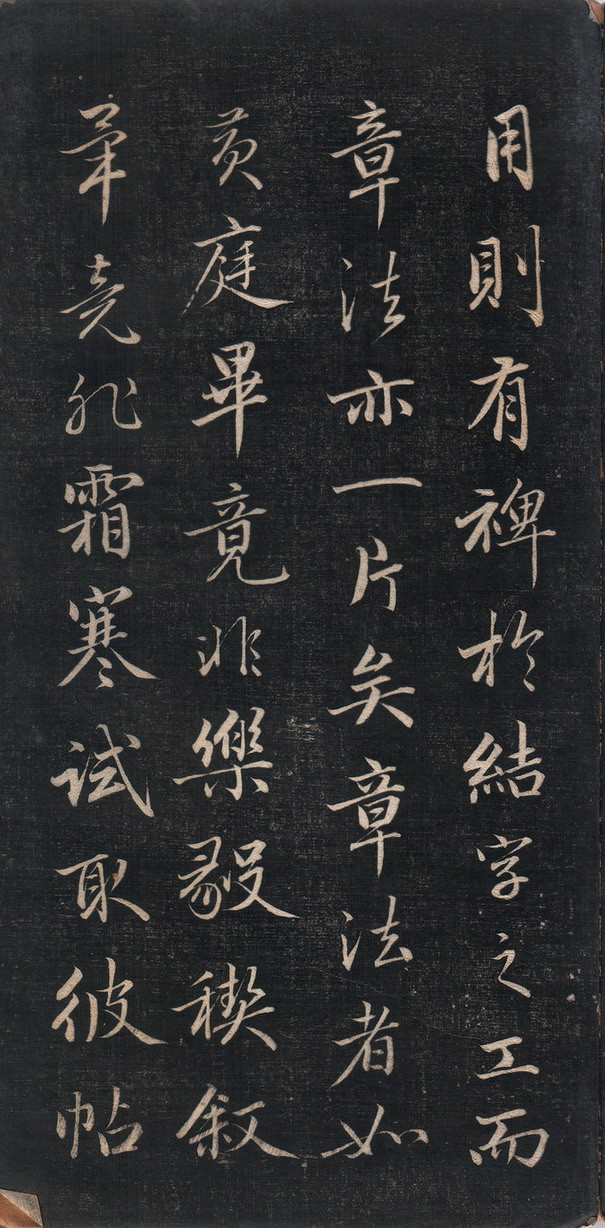 用則有裨於結字之工而
章法亦一片矣章法者如
黃庭畢竟非樂毅稧敘
筆竟非霜寒試取彼帖